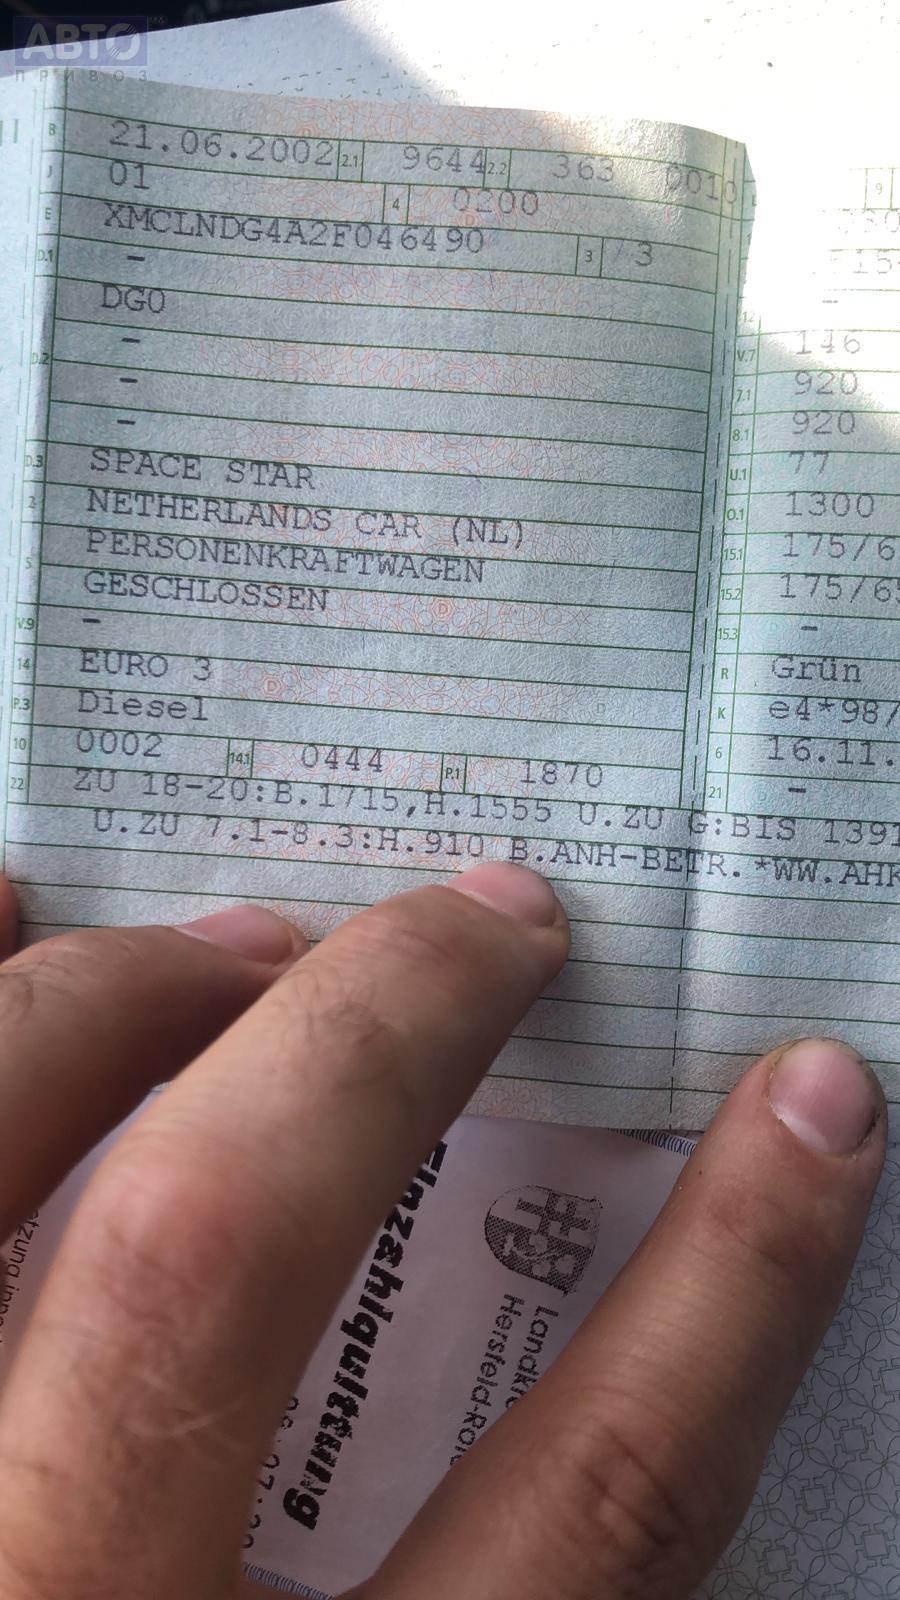 АВТО
ПРИВОЗ
B 21.06.2002 2.1 9644 2.2 363 0010
J 01 4 0200
E XMCLNDG4A2F046490 3 /3
D.1 -
DG0
D.2 -
-
-
D.3 SPACE STAR
2 NETHERLANDS CAR (NL)
5 PERSONENKRAFTWAGEN
GESCHLOSSEN
V.9 -
14 EURO 3
P.3 Diesel
10 0002 14.1 0444 P.1 1870
22 ZU 18-20:B.1715,H.1555 U.ZU G:BIS 1391
U.ZU 7.1-8.3:H.910 B.ANH-BETR.*WW.AHK
9
12 -
V.7 146
7.1 920
8.1 920
U.1 77
O.1 1300
15.1 175/6
15.2 175/65
15.3 -
R Grün
K e4*98/
6 16.11.
21 -
Einzahlquittung
Hersfeld-Rote